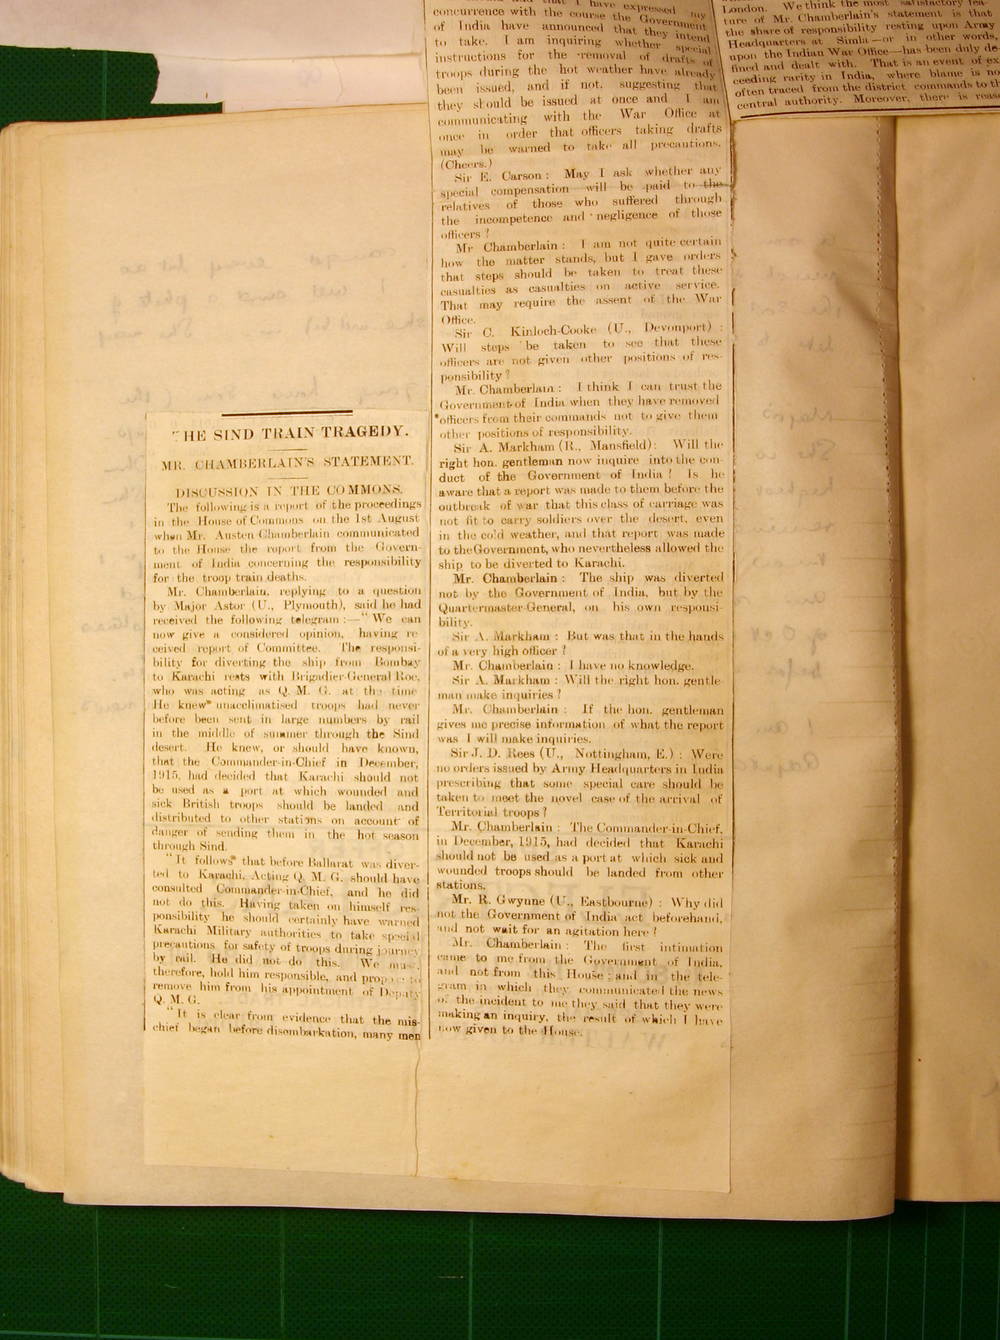 THE SIND TRAIN TRAGEDY.
MR. CHAMBERLAIN'S STATEMENT.
DISCUSSION IN THE COMMONS.
The following is a report of the proceedings
in the House of Commons on the 1st August
when Mr. Austen Chamberlain communicated
to the House the report from the Govern-
ment of India concerning the responsibility
for the troop train deaths.
Mr. Chamberlain, replying to a question
by Major Astor (U., Plymouth), said he had
received the following telegram :—"We can
now give a considered opinion, having re
ceived report of Committee. The responsi-
bility for diverting the ship from Bombay
to Karachi rests with Brigadier-General Roe,
who was acting as Q. M. G. at the time
He knew unacclimatised troops had never
before been sent in large numbers by rail
in the middle of summer through the Sind
desert. He knew, or should have known,
that the Commander-in-Chief in December,
1915, had decided that Karachi should not
be used as a port at which wounded and
sick British troops should be landed and
distributed to other stations on account of
danger of sending them in the hot season
through Sind.
"It follows that before Ballarat was diver-
ted to Karachi, Acting Q. M. G. should have
consulted Commander-in-Chief, and he did
not do this. Having taken on himself res-
ponsibility he should certainly have warned
Karachi Military authorities to take special
precautions for safety of troops during journey
by rail. He did not do this. We must,
therefore, hold him responsible, and propose to
remove him from his appointment of Deputy
Q. M. G.
"It is clear from evidence that the mis-
chief began before disembarkation, many men
that I have expressed my
concurrence with the course the Government
of India have announced that they intend
to take. I am inquiring whether special
instructions for the removal of drafts of
troops during the hot weather have already
been issued, and if not, suggesting that
they should be issued at once and I am
communicating with the War Office at
once in order that officers taking drafts
may be warned to take all precautions.
(Cheers.)
Sir E. Carson : May I ask whether any
special compensation will be paid to the
relatives of those who suffered through
the incompetence and negligence of those
officers ?
Mr Chamberlain : I am not quite certain
how the matter stands, but I gave orders
that steps should be taken to treat these
casualties as casualties on active service.
That may require the assent of the War
Office.
Sir C. Kinloch-Cooke (U., Devonport) :
Will steps be taken to see that these
officers are not given other positions of res-
ponsibility ?
Mr. Chamberlain : I think I can trust the
Government of India when they have removed
officers from their commands not to give them
other positions of responsibility.
Sir A. Markham (R., Mansfield) : Will the
right hon. gentleman now inquire into the con-
duct of the Government of India ? Is he
aware that a report was made to them before the
outbreak of war that this class of carriage was
not fit to carry soldiers over the desert, even
in the cold weather, and that report was made
to the Government, who nevertheless allowed the
ship to be diverted to Karachi.
Mr. Chamberlain : The ship was diverted
not by the Government of India, but by the
Quartermaster-General, on his own responsi-
bility.
Sir A. Markham : But was that in the hands
of a very high officer ?
Mr. Chamberlain : I have no knowledge.
Sir A. Markham : Will the right hon. gentle-
man make inquiries ?
Mr. Chamberlain : If the hon. gentleman
gives me precise information of what the report
was I will make inquiries.
Sir J. D. Rees (U., Nottingham, E.) : Were
no orders issued by Army Headquarters in India
prescribing that some special care should be
taken to meet the novel case of the arrival of
Territorial troops ?
Mr. Chamberlain : The Commander-in-Chief,
in December, 1915, had decided that Karachi
should not be used as a port at which sick and
wounded troops should be landed from other
stations.
Mr. R. Gwynne (U., Eastbourne) : Why did
not the Government of India act beforehand,
and not wait for an agitation here ?
Mr. Chamberlain : The first intimation
came to me from the Government of India,
and not from this House ; and in the tele-
gram in which they communicated the news
of the incident to me they said that they were
making an inquiry, the result of which I have
now given to the House.
London. We think the most satisfactory fea-
ture of Mr. Chamberlain's statement is that
the share of responsibility resting upon Army
Headquarters at Simla—or in other words,
upon the Indian War Office—has been duly de-
fined and dealt with. That is an event of ex
ceeding rarity in India, where blame is no
often traced from the district commands to th
central authority. Moreover, there is reas